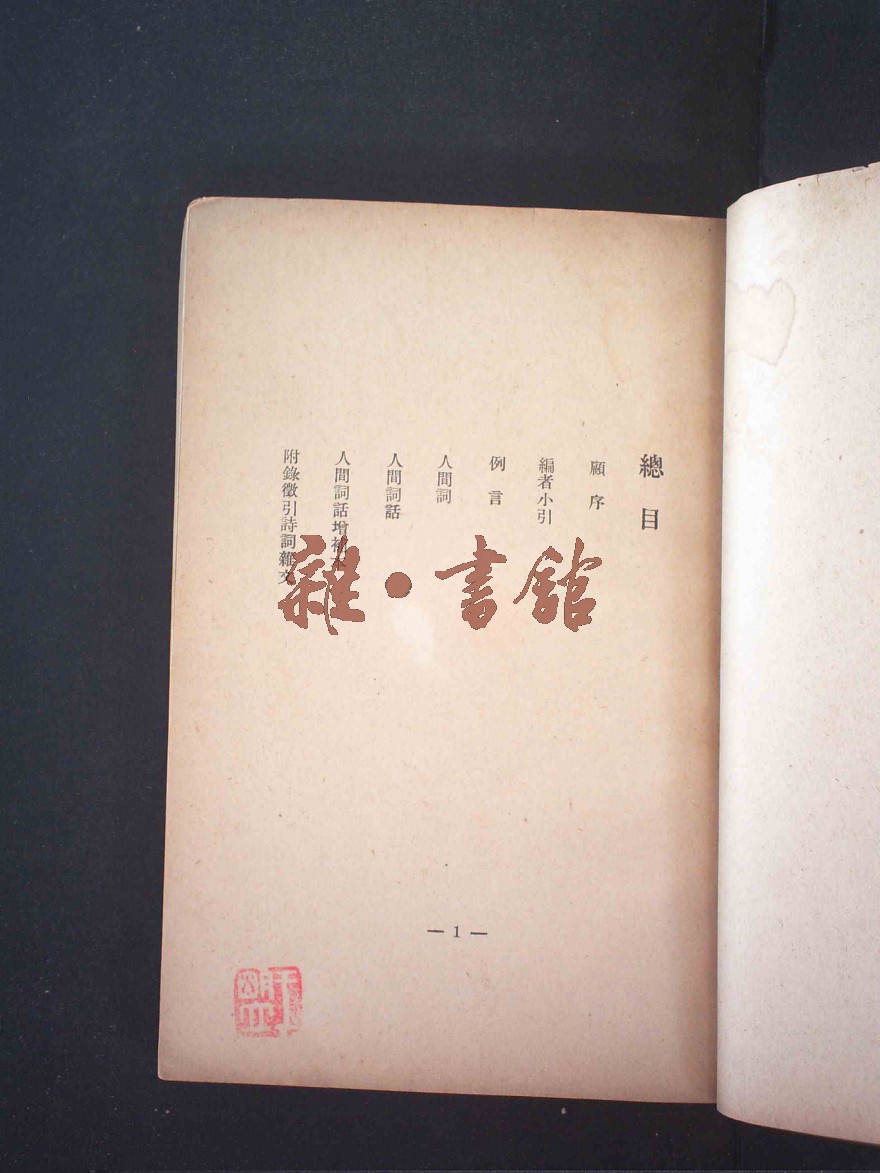 總目
顧序
編者小引
例言
人間詞
人間詞話
人間詞話增補本
附錄徵引詩詞雜文
雜·書館
— 1 —